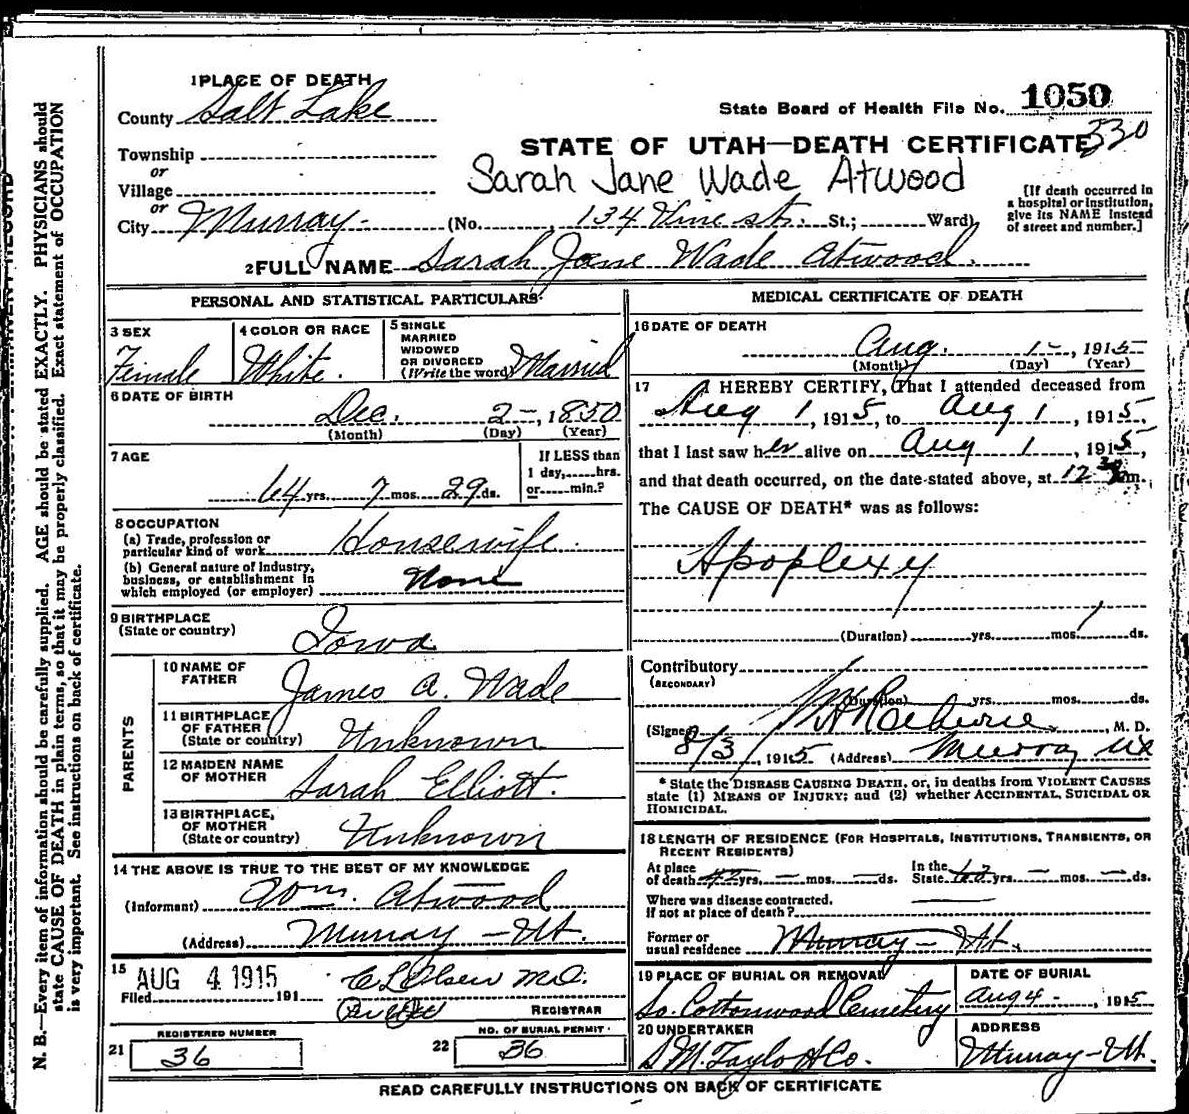 1 PLACE OF DEATH
County Salt Lake
State Board of Health File No. 1050
Township
or
STATE OF UTAH—DEATH CERTIFICATE 330
Village
Sarah Jane Wade Atwood
or
City Murray (No. 134 Vine st. St.; Ward)
[If death occurred in a hospital or institution, give its NAME instead of street and number.]
2 FULL NAME Sarah Jane Wade Atwood.
PERSONAL AND STATISTICAL PARTICULARS
3 SEX
Female
4 COLOR OR RACE
White.
5 SINGLE
MARRIED
WIDOWED
OR DIVORCED
(Write the word) Married
6 DATE OF BIRTH
Dec. 2—, 1850
(Month) (Day) (Year)
7 AGE
64 yrs. 7 mos. 29 ds.
If LESS than
1 day,......hrs.
or......min.?
8 OCCUPATION
(a) Trade, profession or
particular kind of work Housewife.
(b) General nature of Industry,
business, or establishment in
which employed (or employer) None
9 BIRTHPLACE
(State or country)
Iowa
PARENTS
10 NAME OF
FATHER
James A. Wade
11 BIRTHPLACE
OF FATHER
(State or country) Unknown
12 MAIDEN NAME
OF MOTHER
Sarah Elliott.
13 BIRTHPLACE,
OF MOTHER
(State or country) Unknown
14 THE ABOVE IS TRUE TO THE BEST OF MY KNOWLEDGE
(Informant) Wm. Atwood
(Address) Murray—Ut.
15 AUG 4 1915
Filed 191
C L Olsen M.D.
REGISTRAR
REGISTERED NUMBER
21 36
NO. OF BURIAL PERMIT
22 36
MEDICAL CERTIFICATE OF DEATH
16 DATE OF DEATH
Aug. 1—, 1915
(Month) (Day) (Year)
17 I HEREBY CERTIFY, That I attended deceased from
Aug 1, 1915, to Aug 1, 1915,
that I last saw her alive on Aug 1, 1915,
and that death occurred, on the date stated above, at 12 30 m.
The CAUSE OF DEATH* was as follows:
Apoplexy
(Duration) yrs. mos. 1 ds.
Contributory
(SECONDARY)
(Duration) yrs. mos. ds.
(Signed) , M. D.
8/3, 1915 (Address) Murray Ut
* State the DISEASE CAUSING DEATH, or, in deaths from VIOLENT CAUSES
state (1) MEANS OF INJURY; and (2) whether ACCIDENTAL, SUICIDAL OR
HOMICIDAL.
18 LENGTH OF RESIDENCE (FOR HOSPITALS, INSTITUTIONS, TRANSIENTS, OR
RECENT RESIDENTS)
At place
of death 42 yrs. — mos. — ds.
In the
State yrs. — mos. — ds.
Where was disease contracted.
If not at place of death?
Former or
usual residence Murray—Ut.
19 PLACE OF BURIAL OR REMOVAL
So. Cottonwood Cemetery
DATE OF BURIAL
Aug 4—, 1915
20 UNDERTAKER
S M. Taylor & Co.
ADDRESS
Murray—Ut.
READ CAREFULLY INSTRUCTIONS ON BACK OF CERTIFICATE
N. B.—Every item of information should be carefully supplied. AGE should be stated EXACTLY. PHYSICIANS should
state CAUSE OF DEATH in plain terms, so that it may be properly classified. Exact statement of OCCUPATION
is very important. See instructions on back of certificate.